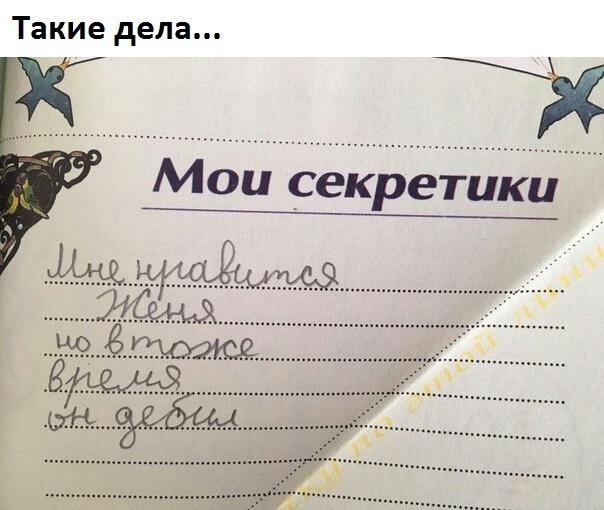 Такие дела...
Мои секретики
Мне нравится
Женя
но в тоже
время
он дебил
ку по этой лини